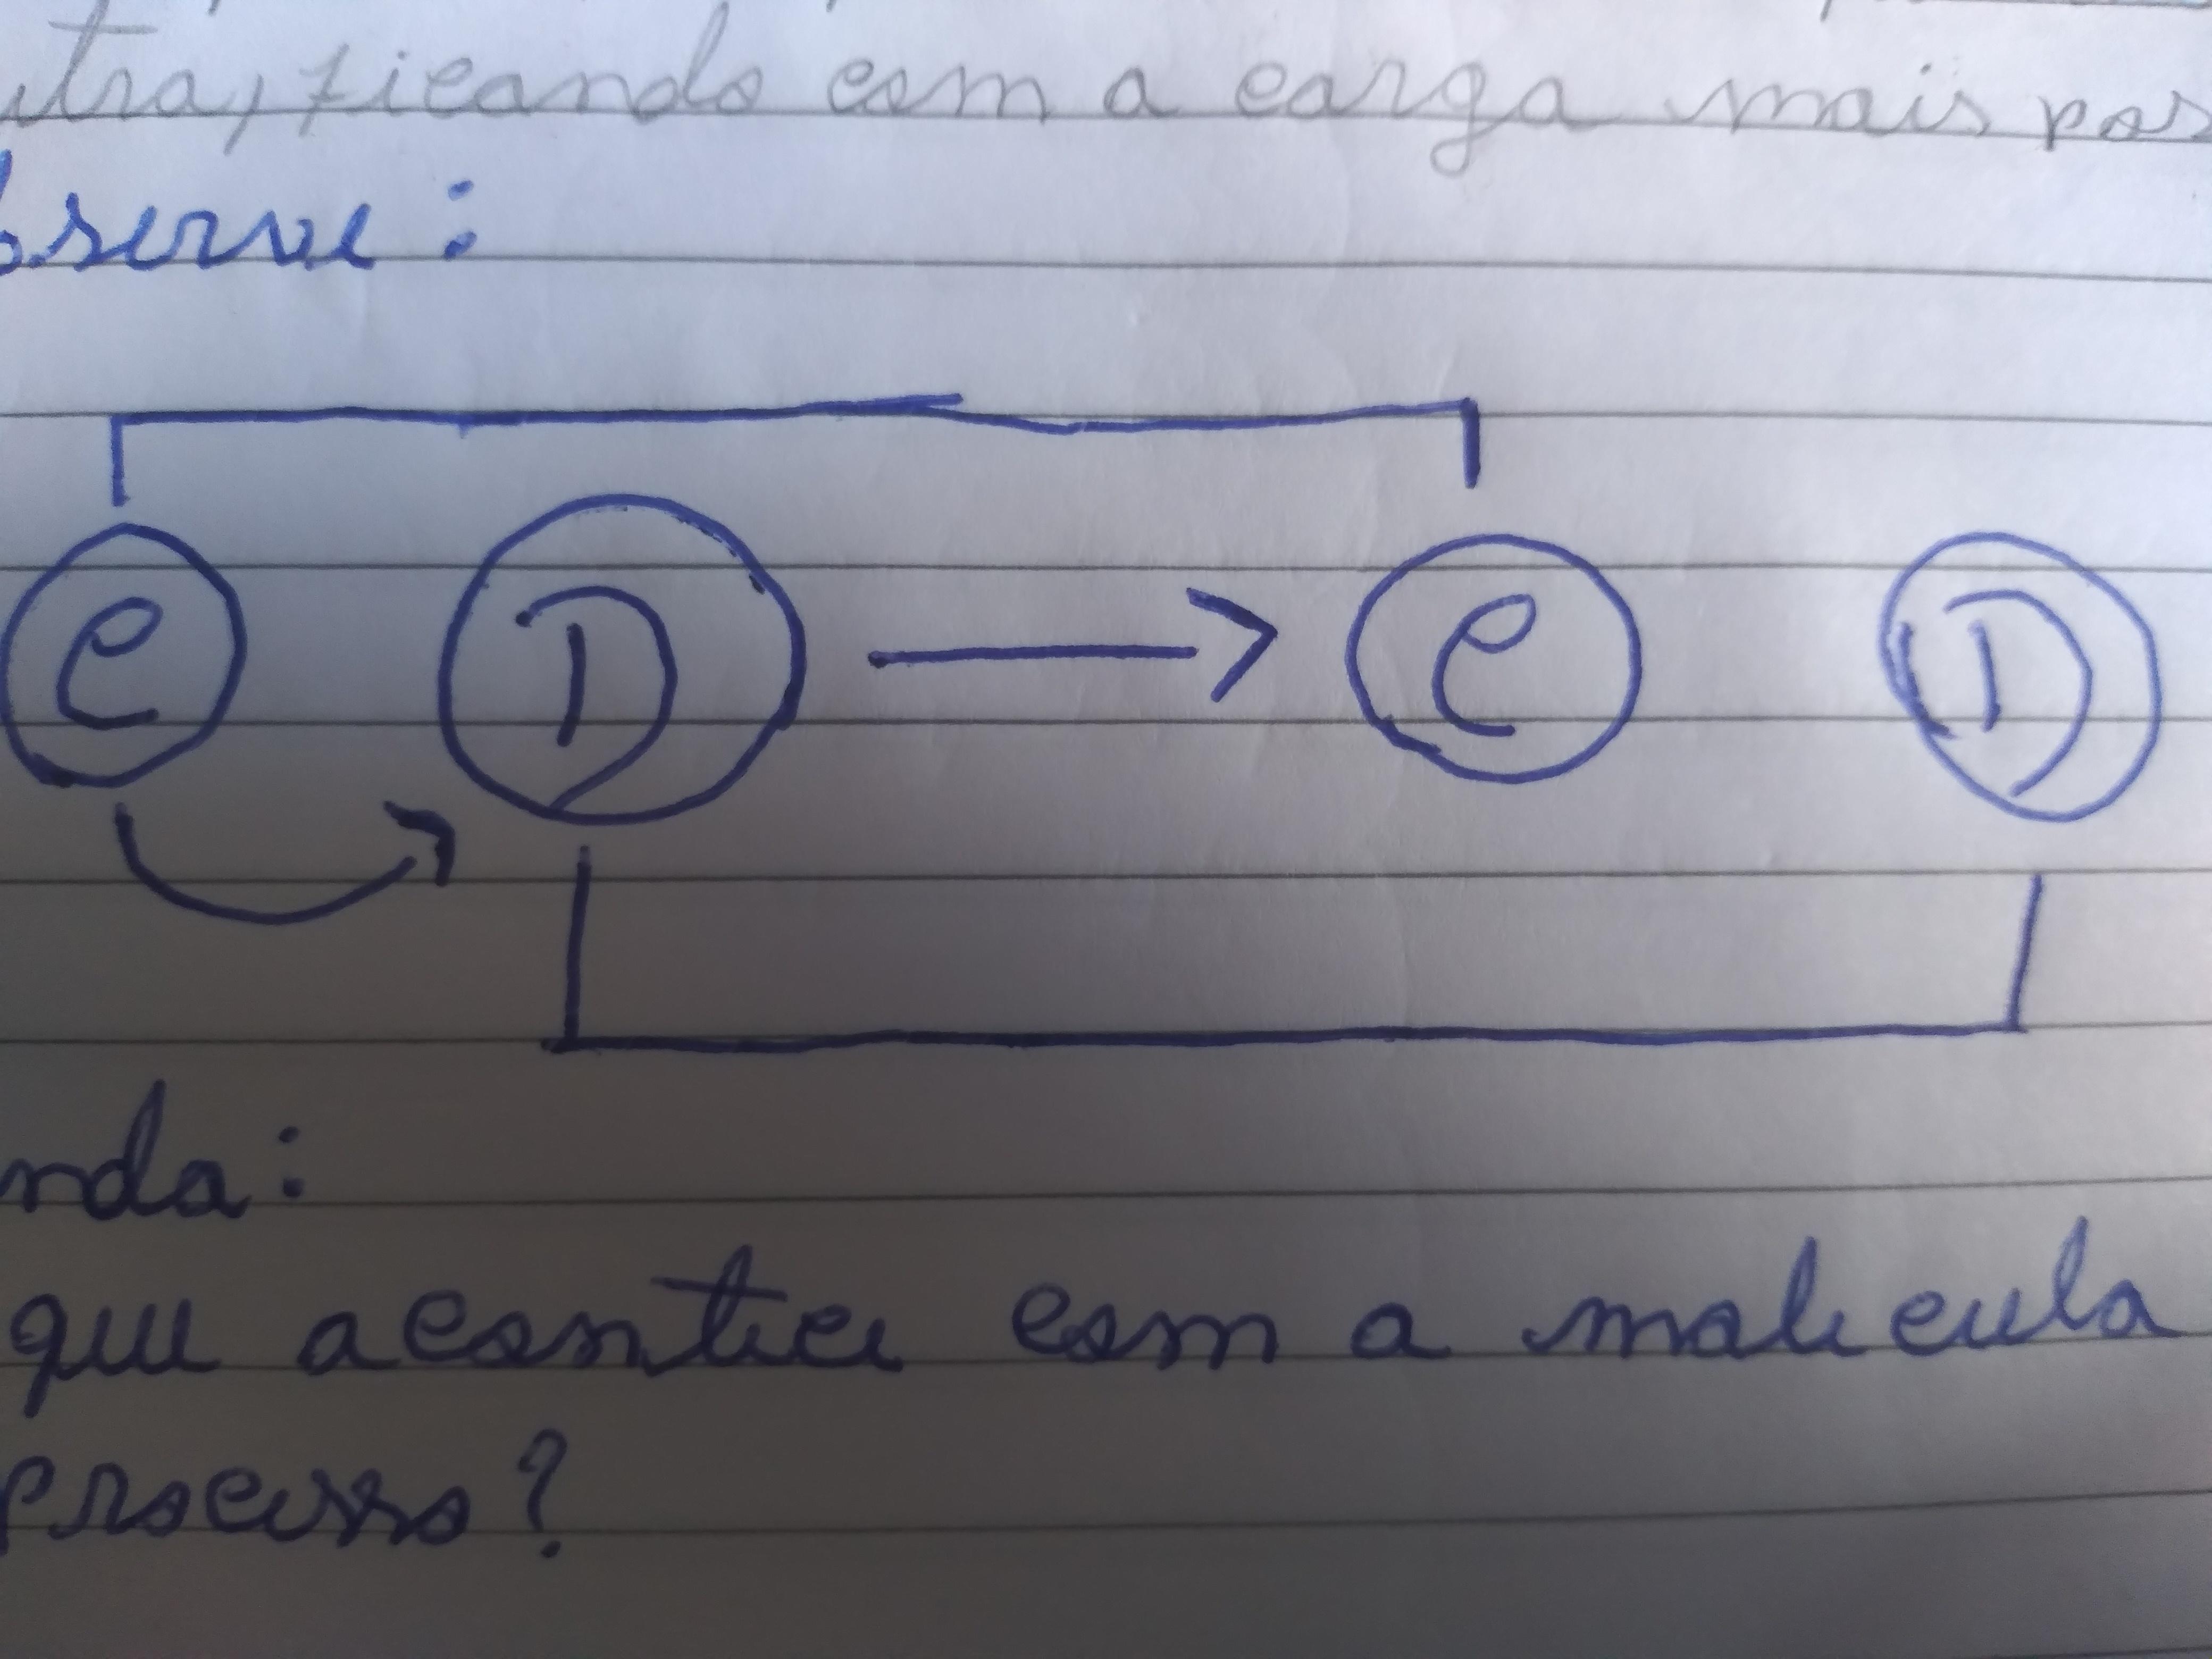 utra, ficando com a carga mais pos
bserve:
C D C D
nda:
que acontece com a molecula
processo?